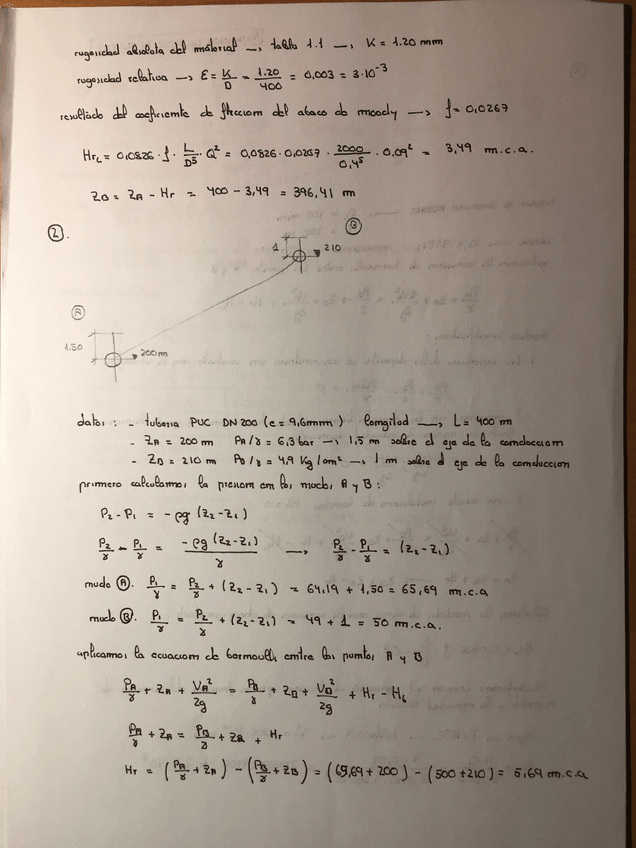 rugosidad absoluta del material → tabla 1.1 → K = 1.20 mm
rugosidad relativa → Ɛ = K/D = 1.20/400 = 0,003 = 3·10⁻³
resultado del coeficiente de friccion del abaco de moody → f = 0,0267
HrL = 0,0826 · f · L/D⁵ · Q² = 0,0826 · 0,0267 · 2000/0,4⁵ · 0,09² = 3,49 m.c.a.
ZB = ZA - Hr = 400 - 3,49 = 396,41 m
2.
B
1
210
A
1.50
200 m
datos : - tuberia PVC DN 200 (e = 9,6mm) longitud → L = 400 m
- ZA = 200 m PA/γ = 6,3 bar → 1,5 m sobre el eje de la conduccion
- ZB = 210 m PB/γ = 4,9 Kg/cm² → 1 m sobre el eje de la conduccion
primero calculamos la presion en los nudos A y B :
P2 - P1 = - ρg (Z2 - Z1)
P2/γ - P1/γ = -ρg (Z2 - Z1)/γ → P2/γ - P1/γ = (Z2 - Z1)
nudo A. P1/γ = P2/γ + (Z2 - Z1) = 64,19 + 1,50 = 65,69 m.c.a
nudo B. P1/γ = P2/γ + (Z2 - Z1) = 49 + 1 = 50 m.c.a.
aplicamos la ecuacion de bernoulli entre los puntos A y B
PA/γ + ZA + VA²/2g = PB/γ + ZB + VB²/2g + Hr - Hb
PA/γ + ZA = PB/γ + ZB + Hr
Hr = (PA/γ + ZA) - (PB/γ + ZB) = (65,69 + 200) - (500 + 210) = 5,69 m.c.a